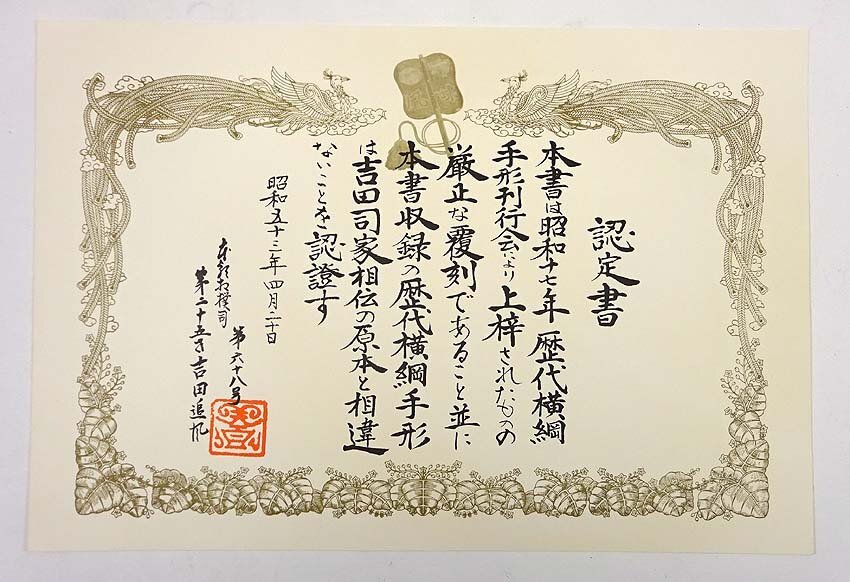 認定書
本書は昭和十七年歴代横綱
手形刊行会により上梓されたものの
厳正な覆刻であること並に
本書収録の歴代横綱手形
は吉田司家相伝の原本と相違
ないことを認證す
昭和五十三年四月二十日
本朝相撲司
第六十八号
第二十五世吉田追風